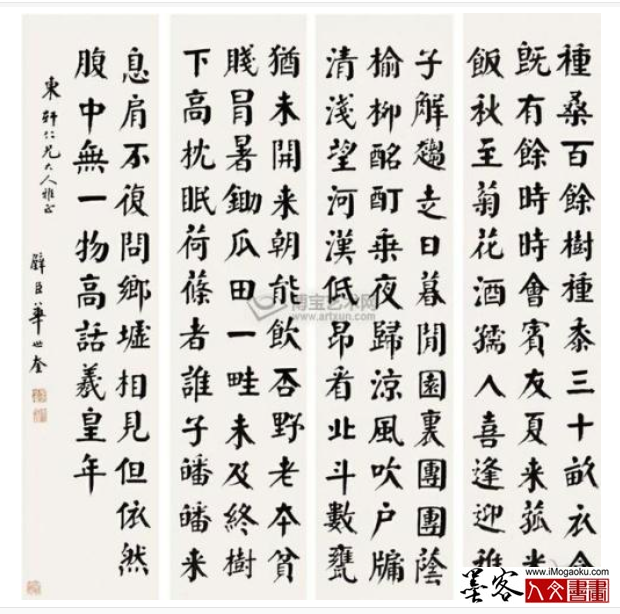 種桑百餘樹種黍三十畝衣食
既有餘時時會賓友夏來菰米
飯秋至菊花酒孺人喜逢迎稚
子解趨走日暮閒園裏團團蔭
榆柳酩酊乘夜歸涼風吹戶牖
清淺望河漢低昂看北斗數甕
猶未開來朝能飲否野老本貧
賤冒暑鋤瓜田一畦未及終樹
下高枕眠荷蓧者誰子皤皤來
息肩不復問鄉墟相見但依然
腹中無一物高話羲皇年
東軒仁兄大人雅正
璧臣華世奎
博宝艺术网
www.artxun.com
墨客
www.iMogaoku.com
人文書畫